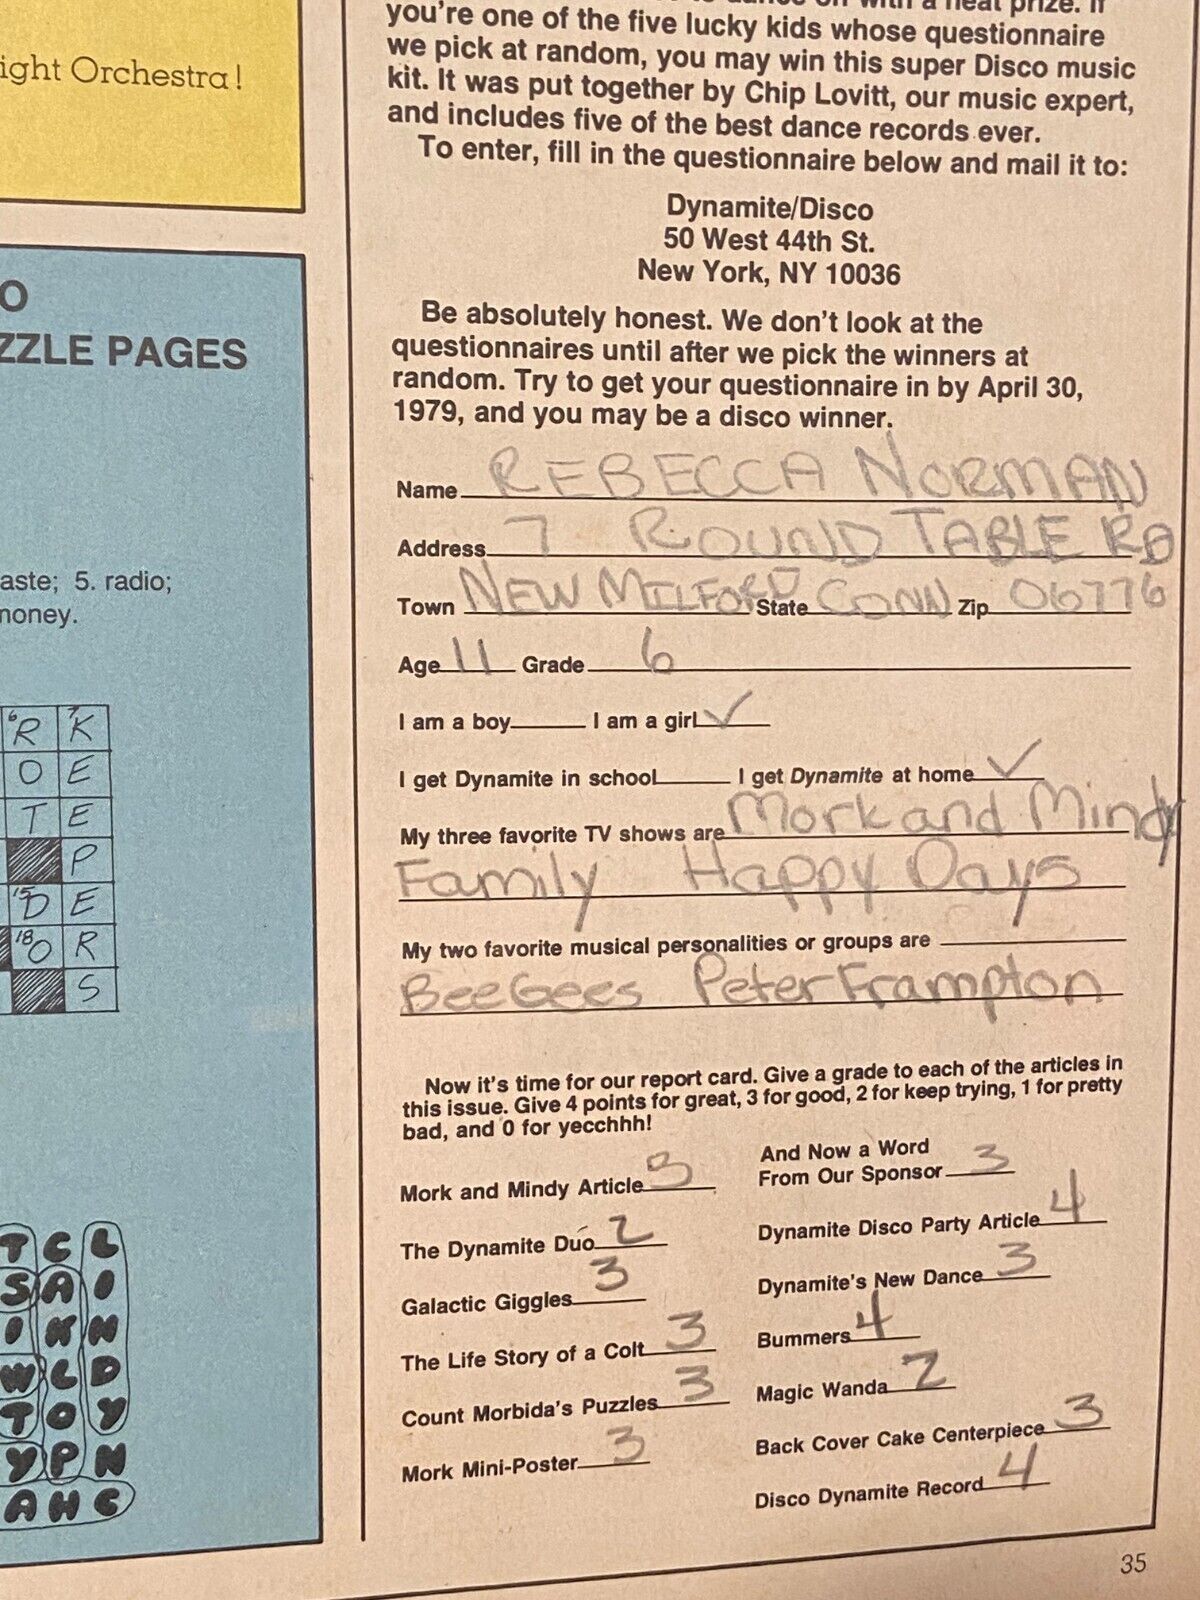 ight Orchestra!
O
ZZLE PAGES
aste; 5. radio;
money.
6R 7K
O E
T E
P
15D E
18O R
S
T C L
S A I
I K N
W L D
T O Y
Y P N
A H C
with a neat prize. If
you're one of the five lucky kids whose questionnaire
we pick at random, you may win this super Disco music
kit. It was put together by Chip Lovitt, our music expert,
and includes five of the best dance records ever.
To enter, fill in the questionnaire below and mail it to:
Dynamite/Disco
50 West 44th St.
New York, NY 10036
Be absolutely honest. We don't look at the
questionnaires until after we pick the winners at
random. Try to get your questionnaire in by April 30,
1979, and you may be a disco winner.
Name REBECCA NORMAN
Address 7 ROUND TABLE RD
Town NEW MILFORD State CONN Zip 06776
Age 11 Grade 6
I am a boy I am a girl ✓
I get Dynamite in school I get Dynamite at home ✓
My three favorite TV shows are Mork and Mindy
Family Happy Days
My two favorite musical personalities or groups are
BeeGees Peter Frampton
Now it's time for our report card. Give a grade to each of the articles in
this issue. Give 4 points for great, 3 for good, 2 for keep trying, 1 for pretty
bad, and 0 for yecchhh!
Mork and Mindy Article 3
The Dynamite Duo 2
Galactic Giggles 3
The Life Story of a Colt 3
Count Morbida's Puzzles 3
Mork Mini-Poster 3
And Now a Word
From Our Sponsor 3
Dynamite Disco Party Article 4
Dynamite's New Dance 3
Bummers 4
Magic Wanda 2
Back Cover Cake Centerpiece 3
Disco Dynamite Record 4
35